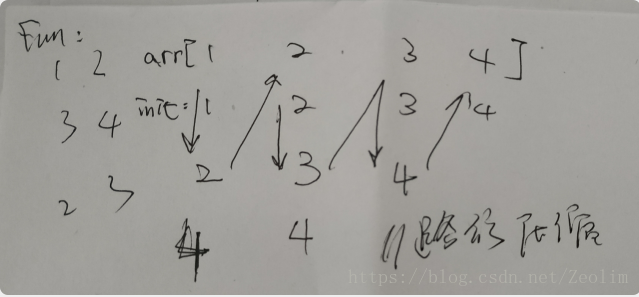 Fun:
1 2 arr[1 2 3 4]
3 4 init: 1 2 3 4
2 3 2 3 4
4 4 //路径
https://blog.csdn.net/Zeolim